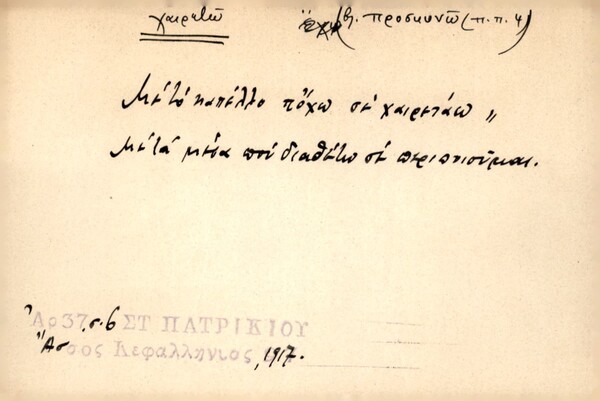 χαιρετῶ (βλ. προσκυνῶ (π.π. 4)
Μέ τό καπέλλο πὄχω σέ χαιρετάω „
Μέ τά μέσα πού διαθέτω σέ περιποιοῦμαι.
Ἀρ 37 σ. 6 ΣΤ ΠΑΤΡΙΚΙΟΥ
Ἄσσος Κεφαλληνίος, 1917.